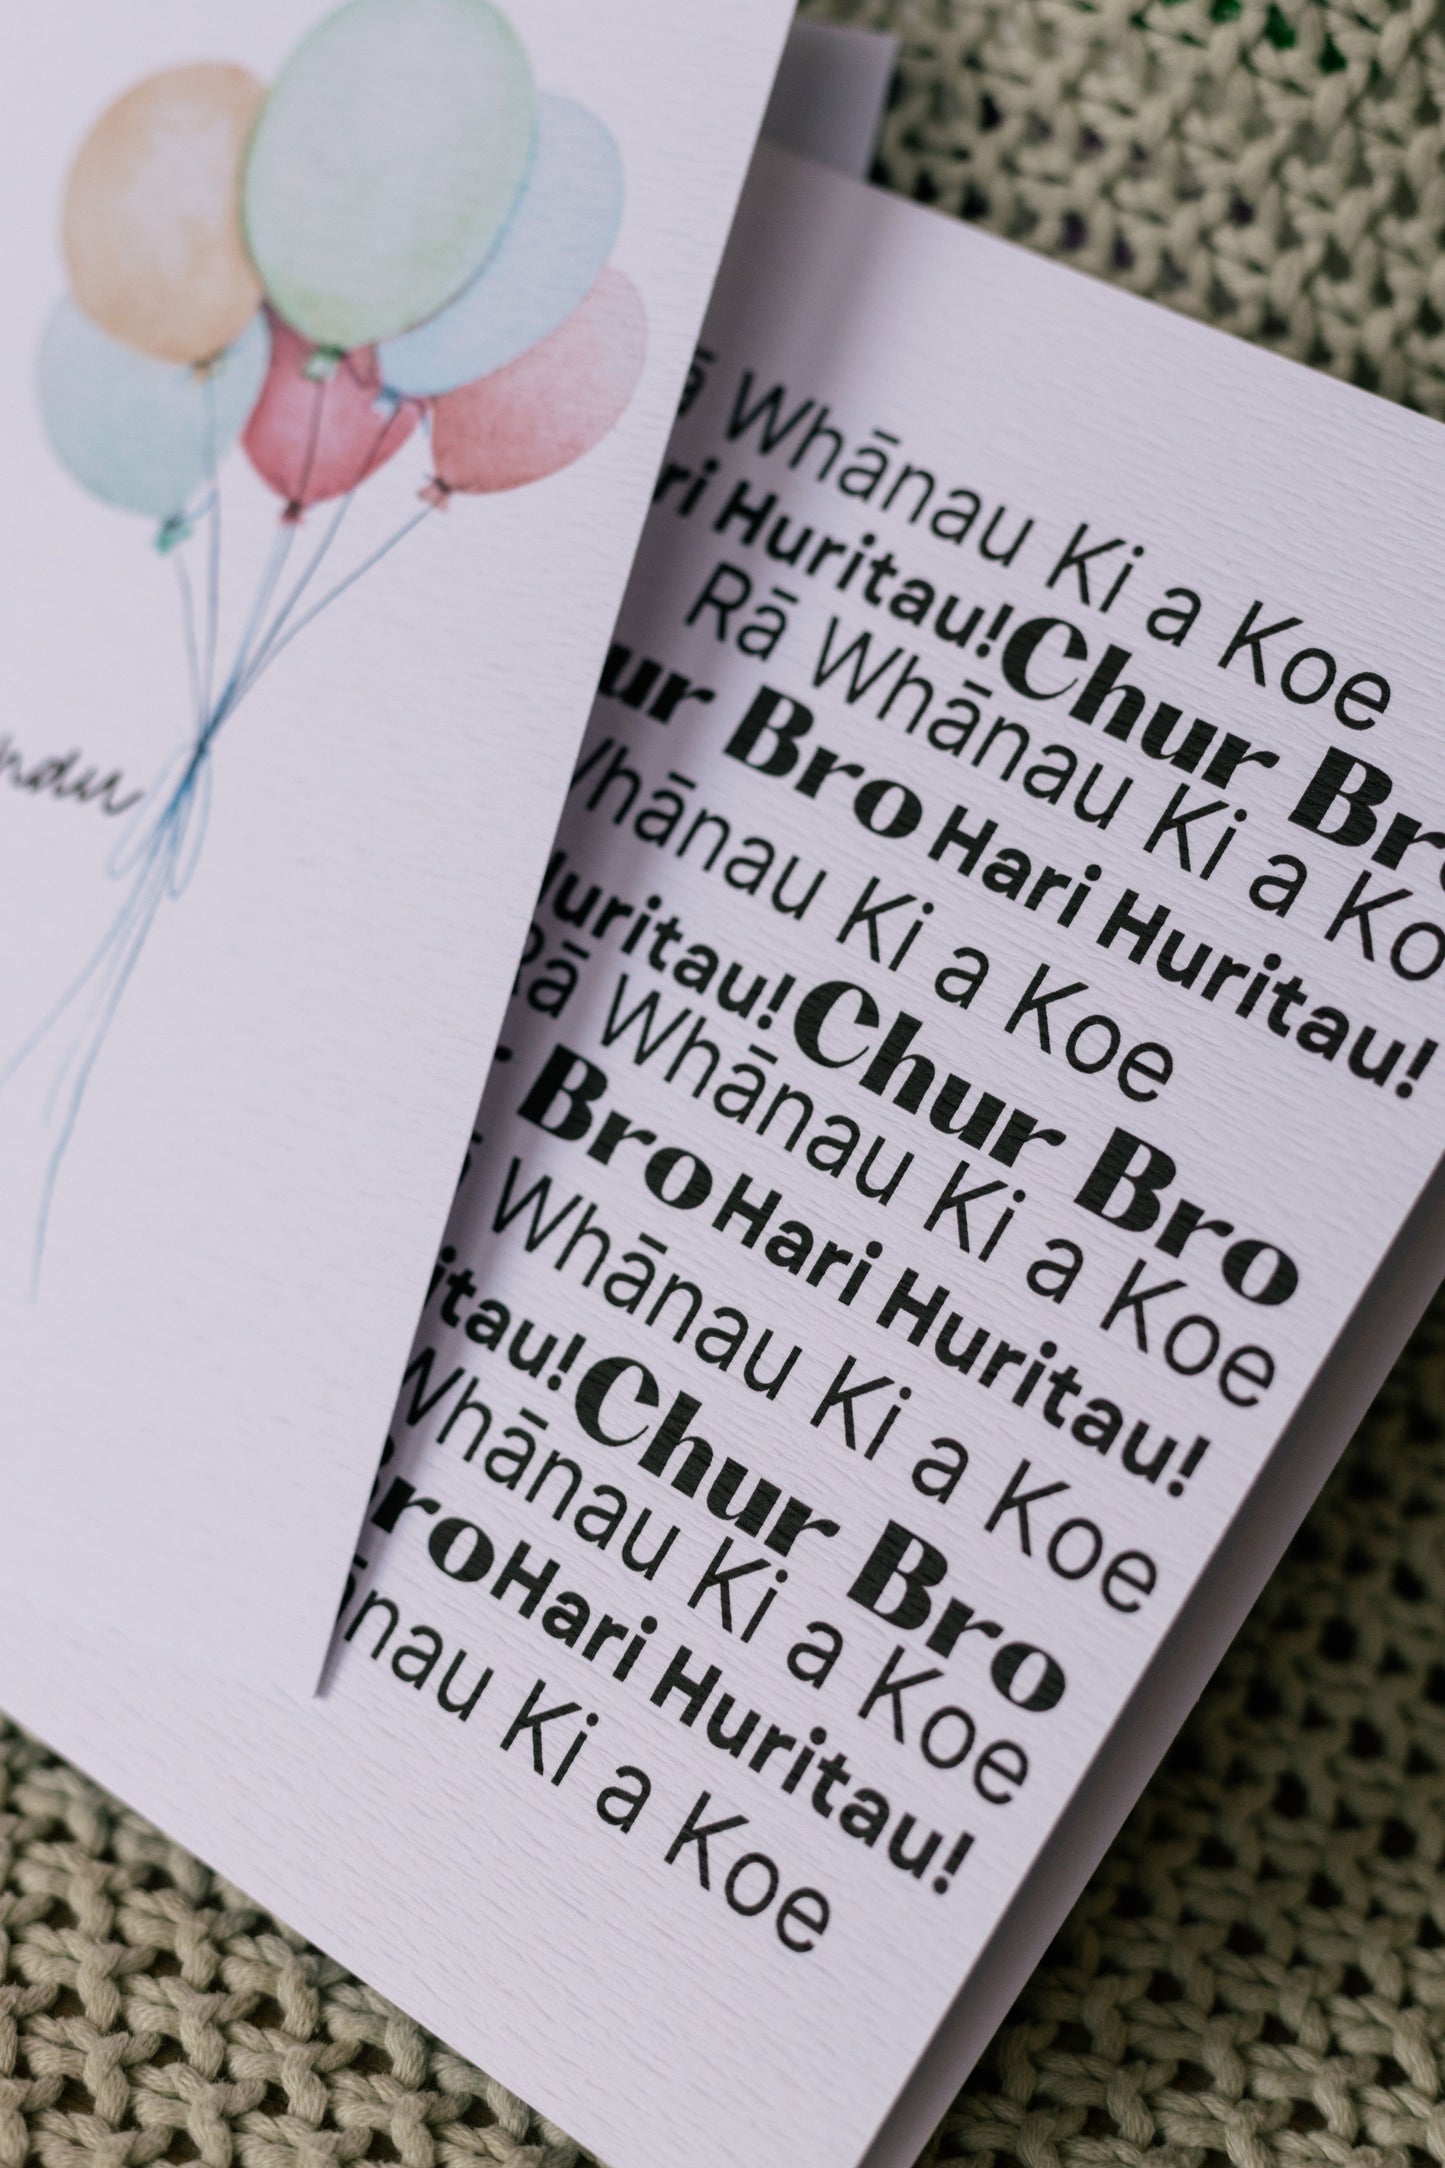 Whānau Ki a Koe
Huritau! Chur
Rā Whānau Ki a
Bro Hari Huritau!
Whānau Ki a Koe
Huritau! Chur Bro
Rā Whānau Ki a Koe
Bro Hari Huritau!
Whānau Ki a Koe
Chur Bro
Whānau Ki a Koe
Bro Hari Huritau!
Ki a Koe